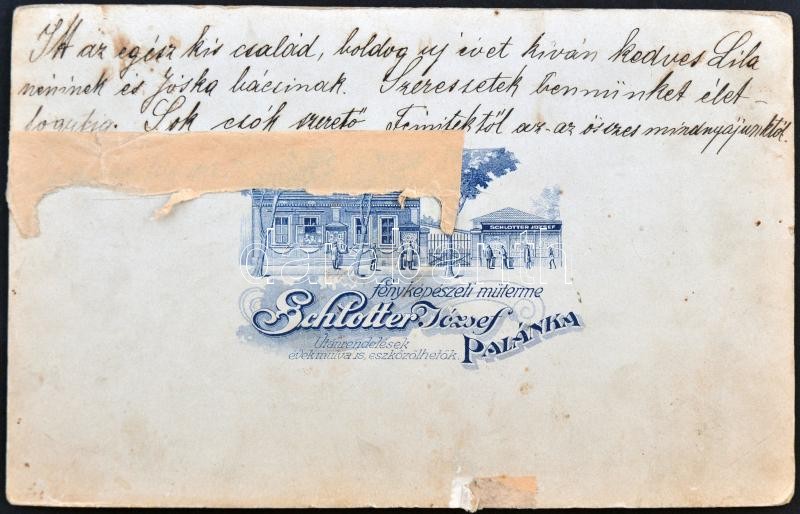 Itt az egész kis család, boldog uj évet kiván kedves Lila
néninek és Jóska bácsinak. Szeressetek bennünket élet-
fogytig. Sok csók szerető az-az összes mindnyájunktól.
SCHLOTTER JÓZSEF
fényképészeti műterme
Schlotter József
PALÁNKA
Utánrendelések
évek mulva is, eszközölhetők.